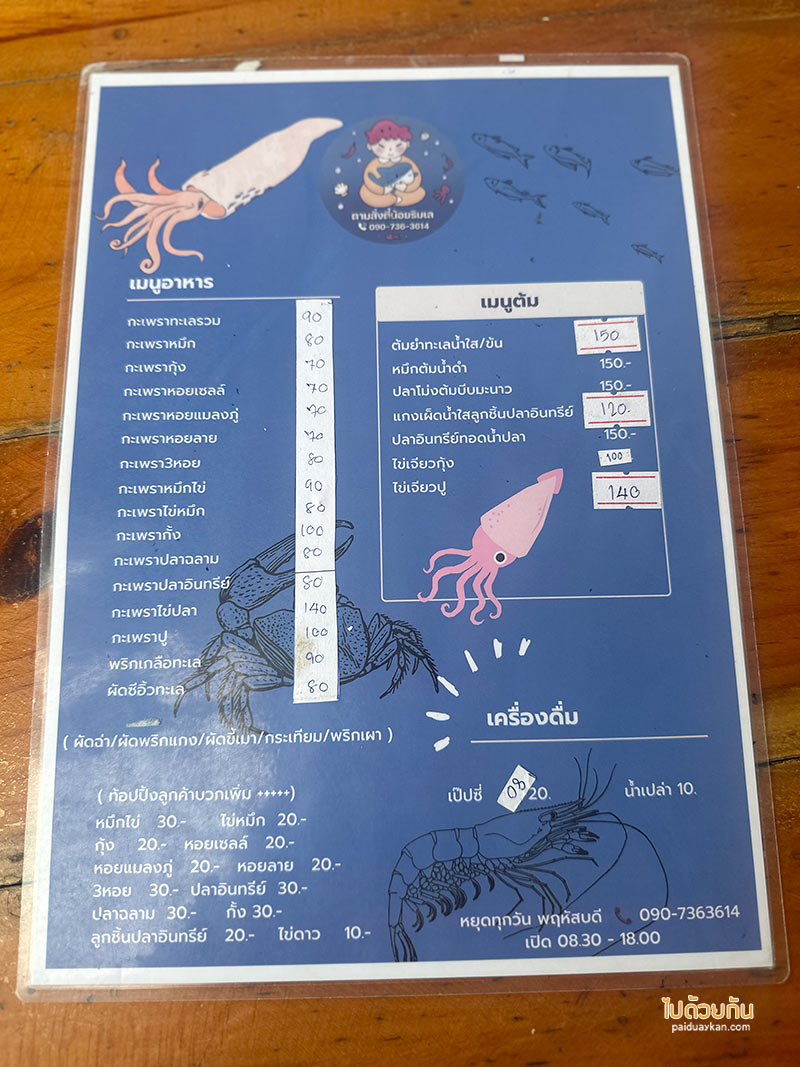 ตามสั่งตี๋น้อยริมเล
090-736-3614
เมนูอาหาร
กะเพราทะเลรวม 90
กะเพราหมึก 80
กะเพรากุ้ง 70
กะเพราหอยเชลล์ 70
กะเพราหอยแมลงภู่ 70
กะเพราหอยลาย 70
กะเพรา3หอย 80
กะเพราหมึกไข่ 90
กะเพราไข่หมึก 80
กะเพรากั้ง 100
กะเพราปลาฉลาม 80
กะเพราปลาอินทรีย์ 80
กะเพราไข่ปลา 140
กะเพราปู 100
พริกเกลือทะเล 90
ผัดซีอิ้วทะเล 80
( ผัดฉ่า/ผัดพริกแกง/ผัดขี้เมา/กระเทียม/พริกเผา )
( ท้อปปิ้งลูกค้าบวกเพิ่ม +++++)
หมึกไข่ 30.- ไข่หมึก 20.-
กุ้ง 20.- หอยเชลล์ 20.-
หอยแมลงภู่ 20.- หอยลาย 20.-
3หอย 30.- ปลาอินทรีย์ 30.-
ปลาฉลาม 30.- กั้ง 30.-
ลูกชิ้นปลาอินทรีย์ 20.- ไข่ดาว 10.-
เมนูต้ม
ต้มยำทะเลน้ำใส/ข้น 150
หมึกต้มน้ำดำ 150.-
ปลาโม่งต้มบีบมะนาว 150.-
แกงเผ็ดน้ำใสลูกชิ้นปลาอินทรีย์ 120.
ปลาอินทรีย์ทอดน้ำปลา 150.-
ไข่เจียวกุ้ง 100
ไข่เจียวปู 140
เครื่องดื่ม
เป๊ปซี่ 20. น้ำเปล่า 10.
หยุดทุกวัน พฤหัสบดี 090-7363614
เปิด 08.30 - 18.00
ไปด้วยกัน
paiduaykan.com